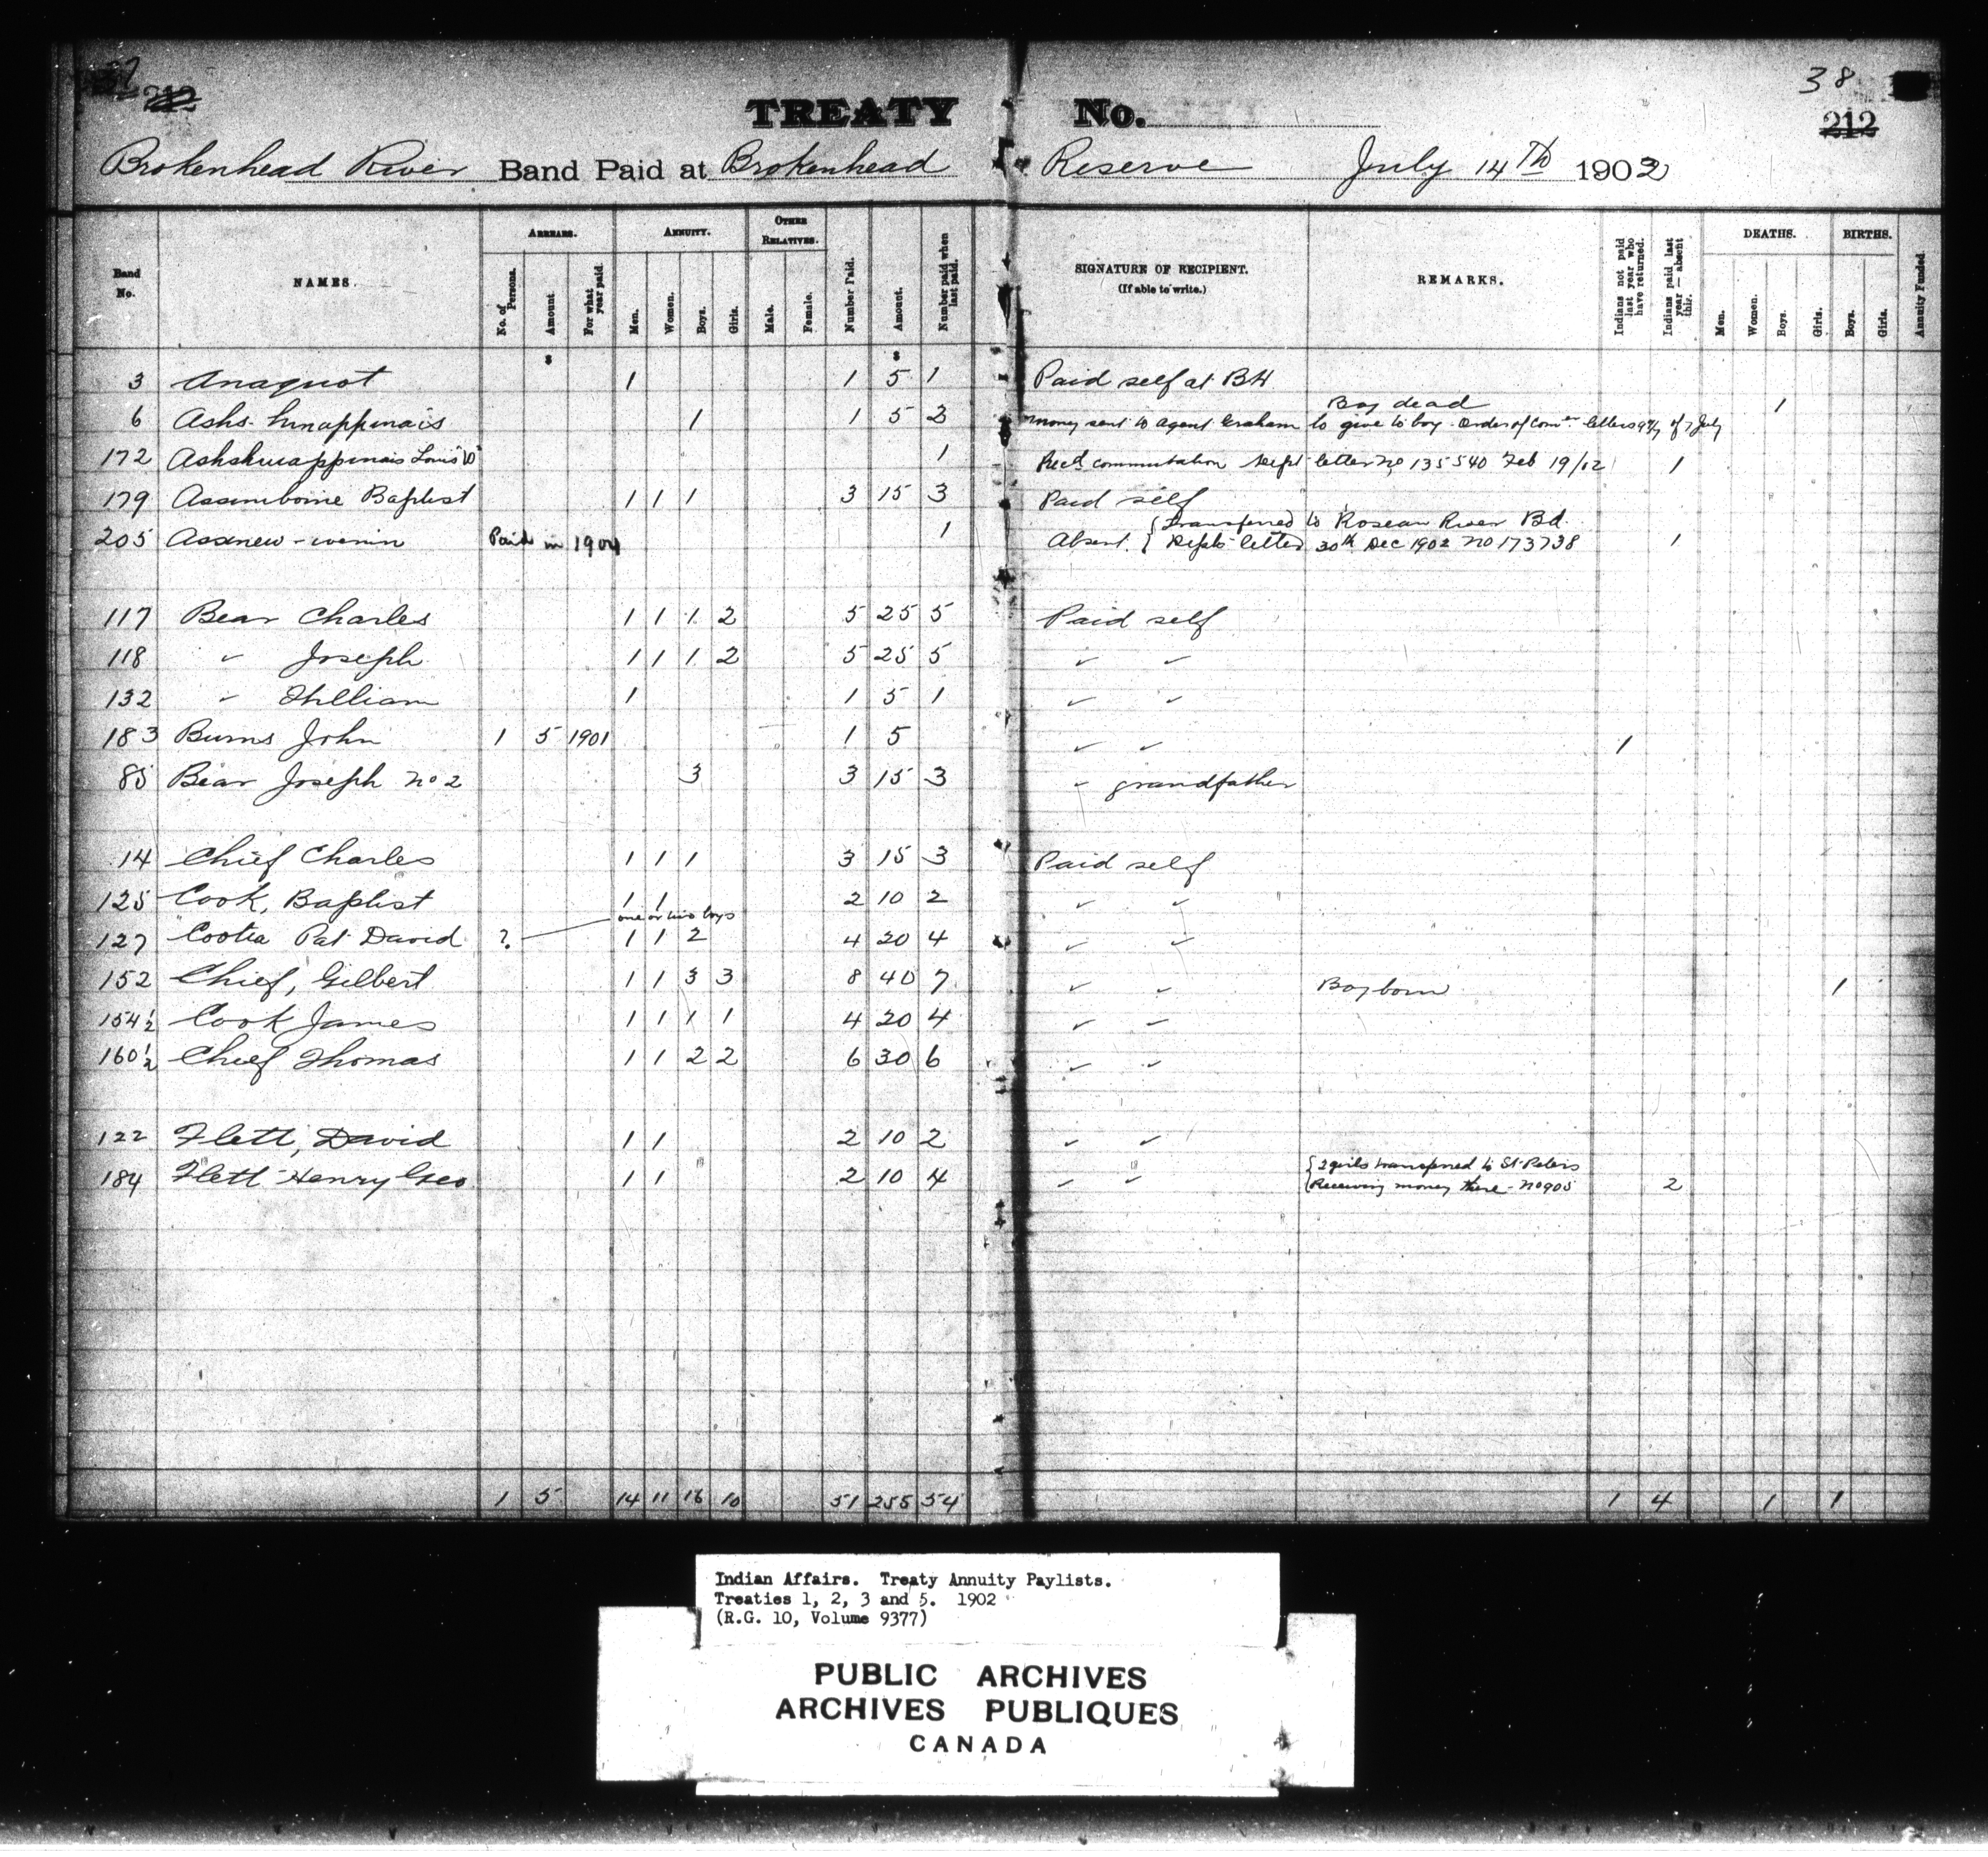 37 38
212 212
TREATY No.
Brokenhead River Band Paid at Brokenhead Reserve July 14th 1902
Band No. NAMES. ARREARS. No. of Persons. Amount For what year paid. ANNUITY. Men. Women. Boys. Girls. OTHER RELATIVES. Male. Female. Number Paid. Amount. Number paid when last paid. SIGNATURE OF RECIPIENT. (If able to write.) REMARKS. Indians not paid last year who have returned. Indians paid last year — absent this. DEATHS. Men. Women. Boys. Girls. BIRTHS. Boys. Girls. Annuity Funded.
$ $
3 Anaquot 1 1 5 1 Paid self at BH
Boy dead
6 1 1 5 2 money sent to agent Graham to give to boy. Order of Comr letters of 7 July 1
172 Louis 1 Recd commutation Dept letter no 135540 Feb 19/02 1
179 Assiniboine Baptist 1 1 1 3 15 3 Paid self
{ Transferred to Roseau River Bd.
205 Assinew-wenin Paid in 1904 1 Absent. { Depts letter 30th Dec 1902 no 173738 1
117 Bear Charles 1 1 1 2 5 25 5 Paid self
118 " Joseph 1 1 1 2 5 25 5 " "
132 " William 1 1 5 1 " "
183 Burns John 1 5 1901 1 5 " " 1
85 Bear Joseph no 2 3 3 15 3 " grandfather
14 Chief Charles 1 1 1 3 15 3 Paid self
125 Cook, Baptist 1 1 2 10 2 " "
one or two boys
127 Cootea Pat David ? 1 1 2 4 20 4 " "
152 Chief, Gilbert 1 1 3 3 8 40 7 " " Boy born 1
154½ Cook James 1 1 1 1 4 20 4 " "
160½ Chief Thomas 1 1 2 2 6 30 6 " "
122 Flett, David 1 1 2 10 2 " "
{ 2 girls transferred to St. Peters
184 Flett Henry Geo 1 1 2 10 4 " " { Receiving money there - no 905 2
1 5 14 11 16 10 51 255 54 1 4 1 1
Indian Affairs. Treaty Annuity Paylists.
Treaties 1, 2, 3 and 5. 1902
(R.G. 10, Volume 9377)
PUBLIC ARCHIVES
ARCHIVES PUBLIQUES
CANADA